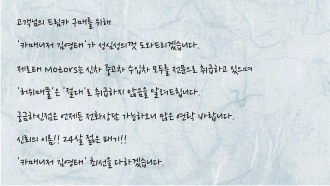 고객님의 드림카 구매를 위해
'카매니저 김영태'가 정성심의껏 도와드리겠습니다.
제로태 Motors는 신차 중고차 수입차 모두를 전문으로 취급하고 있으며
'허위매물'은 '절대'로 취급하지 않음을 알려드립니다.
궁금하신점은 언제든 전화상담 가능하오니 많은 연락 바랍니다.
신뢰의 이름!! 24살 젊은 패기!!
'카매니저 김영태' 최선을 다하겠습니다.